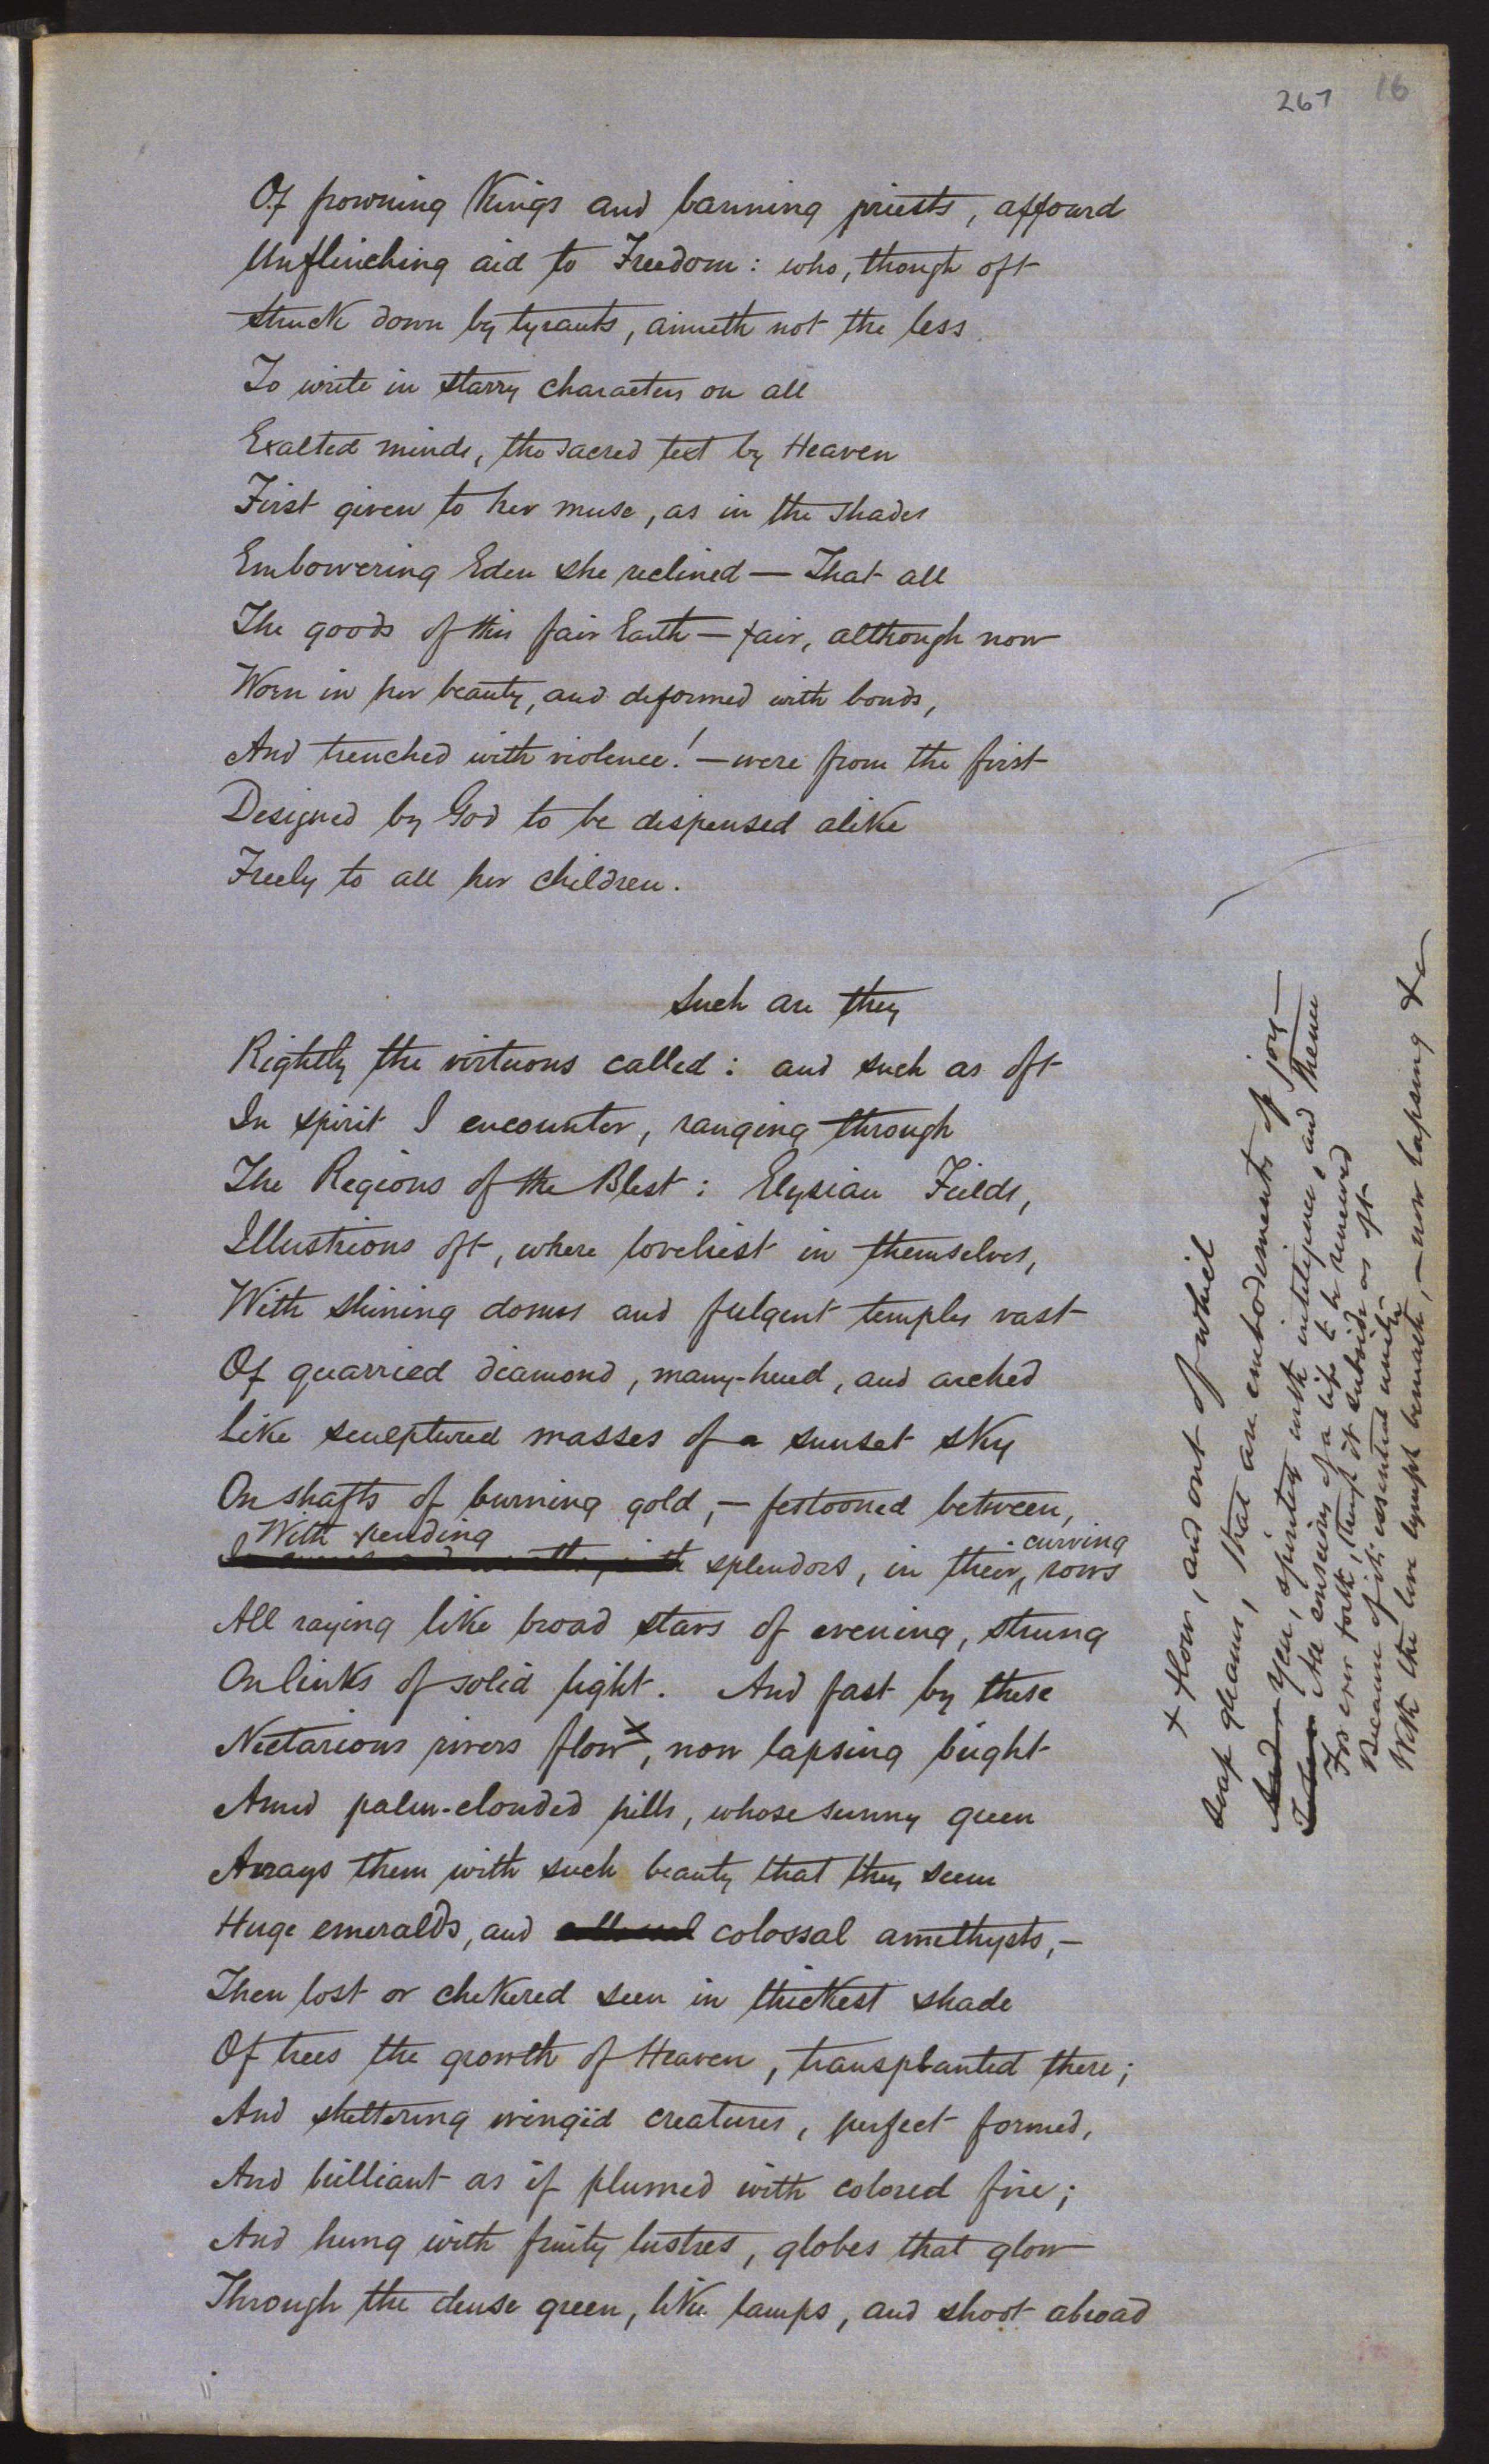 267 16
Of frowning Kings and banning priests, affoard
Unflinching aid to Freedom: who, though oft
struck down by tyrants, aimeth not the less
To write in starry characters on all
Exalted minds, the sacred text by Heaven
First given to her muse, as in the shades
Embowering Eden she reclined — That all
The goods of this fair Earth — fair, although now
Worn in her beauty, and deformed with bonds,
And trenched with violence! — were from the first
Designed by God to be dispensed alike
Freely to all her children.
Such are they
Rightly the virtuous called: and such as oft
In spirit I encounter, ranging through
The Regions of the Blest: Elysian Fields,
Illustrious oft, where loveliest in themselves,
With shining domes and fulgent temples vast
Of quarried diamond, many-hued, and arched
Like sculptured masses of a sunset sky
On shafts of burning gold, — festooned between,
With pending splendors, in their curving rows
All raying like broad stars of evening, strung
On links of solid light. And fast by these
Nectarious rivers flow x, now lapsing bright
Amid palm-clouded hills, whose sunny green
Arrays them with such beauty that they seem
Huge emeralds, and colossal amethysts, —
Then lost or chekered seen in thickest shade
Of trees the growth of Heaven, transplanted there;
And sheltering wingïd creatures, perfect formed,
And brilliant as if plumed with colored fire;
And hung with fruity lustres, globes that glow
Through the dense green, like lamps, and shoot abroad
x flow, and out of which
Soap gleams, that are embodiments of joy —
And yea, spirited with intelligence, and thence
As conscious of a life to be renewed
For ever forth, though it subside as oft
Because of its essential unity
With the live lymph beneath, — now lapsing &c